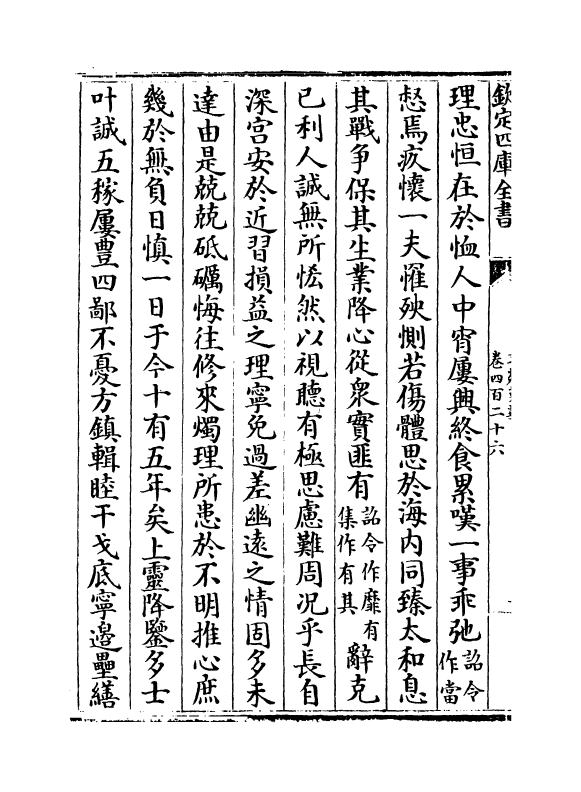 欽定四庫全書
卷四百二十六
理忠恒在於恤人中宵屢興終食累嘆一事乖弛詔令作當
愸焉疚懷一夫罹殃惻若傷體思於海内同臻太和息
其戰争保其生業降心從衆實匪有詔令作靡有集作有其辭克
已利人誠無所恡然以視聽有極思慮難周况乎長自
深宫安於近習損益之理寧免過差幽遠之情固多未
達由是兢兢砥礪悔往修來燭理所患於不明推心庶
幾於無負日慎一日于今十有五年矣上靈降鑒多士
叶誠五稼屢豊四鄙不憂方鎮輯睦干戈底寧邉壘繕